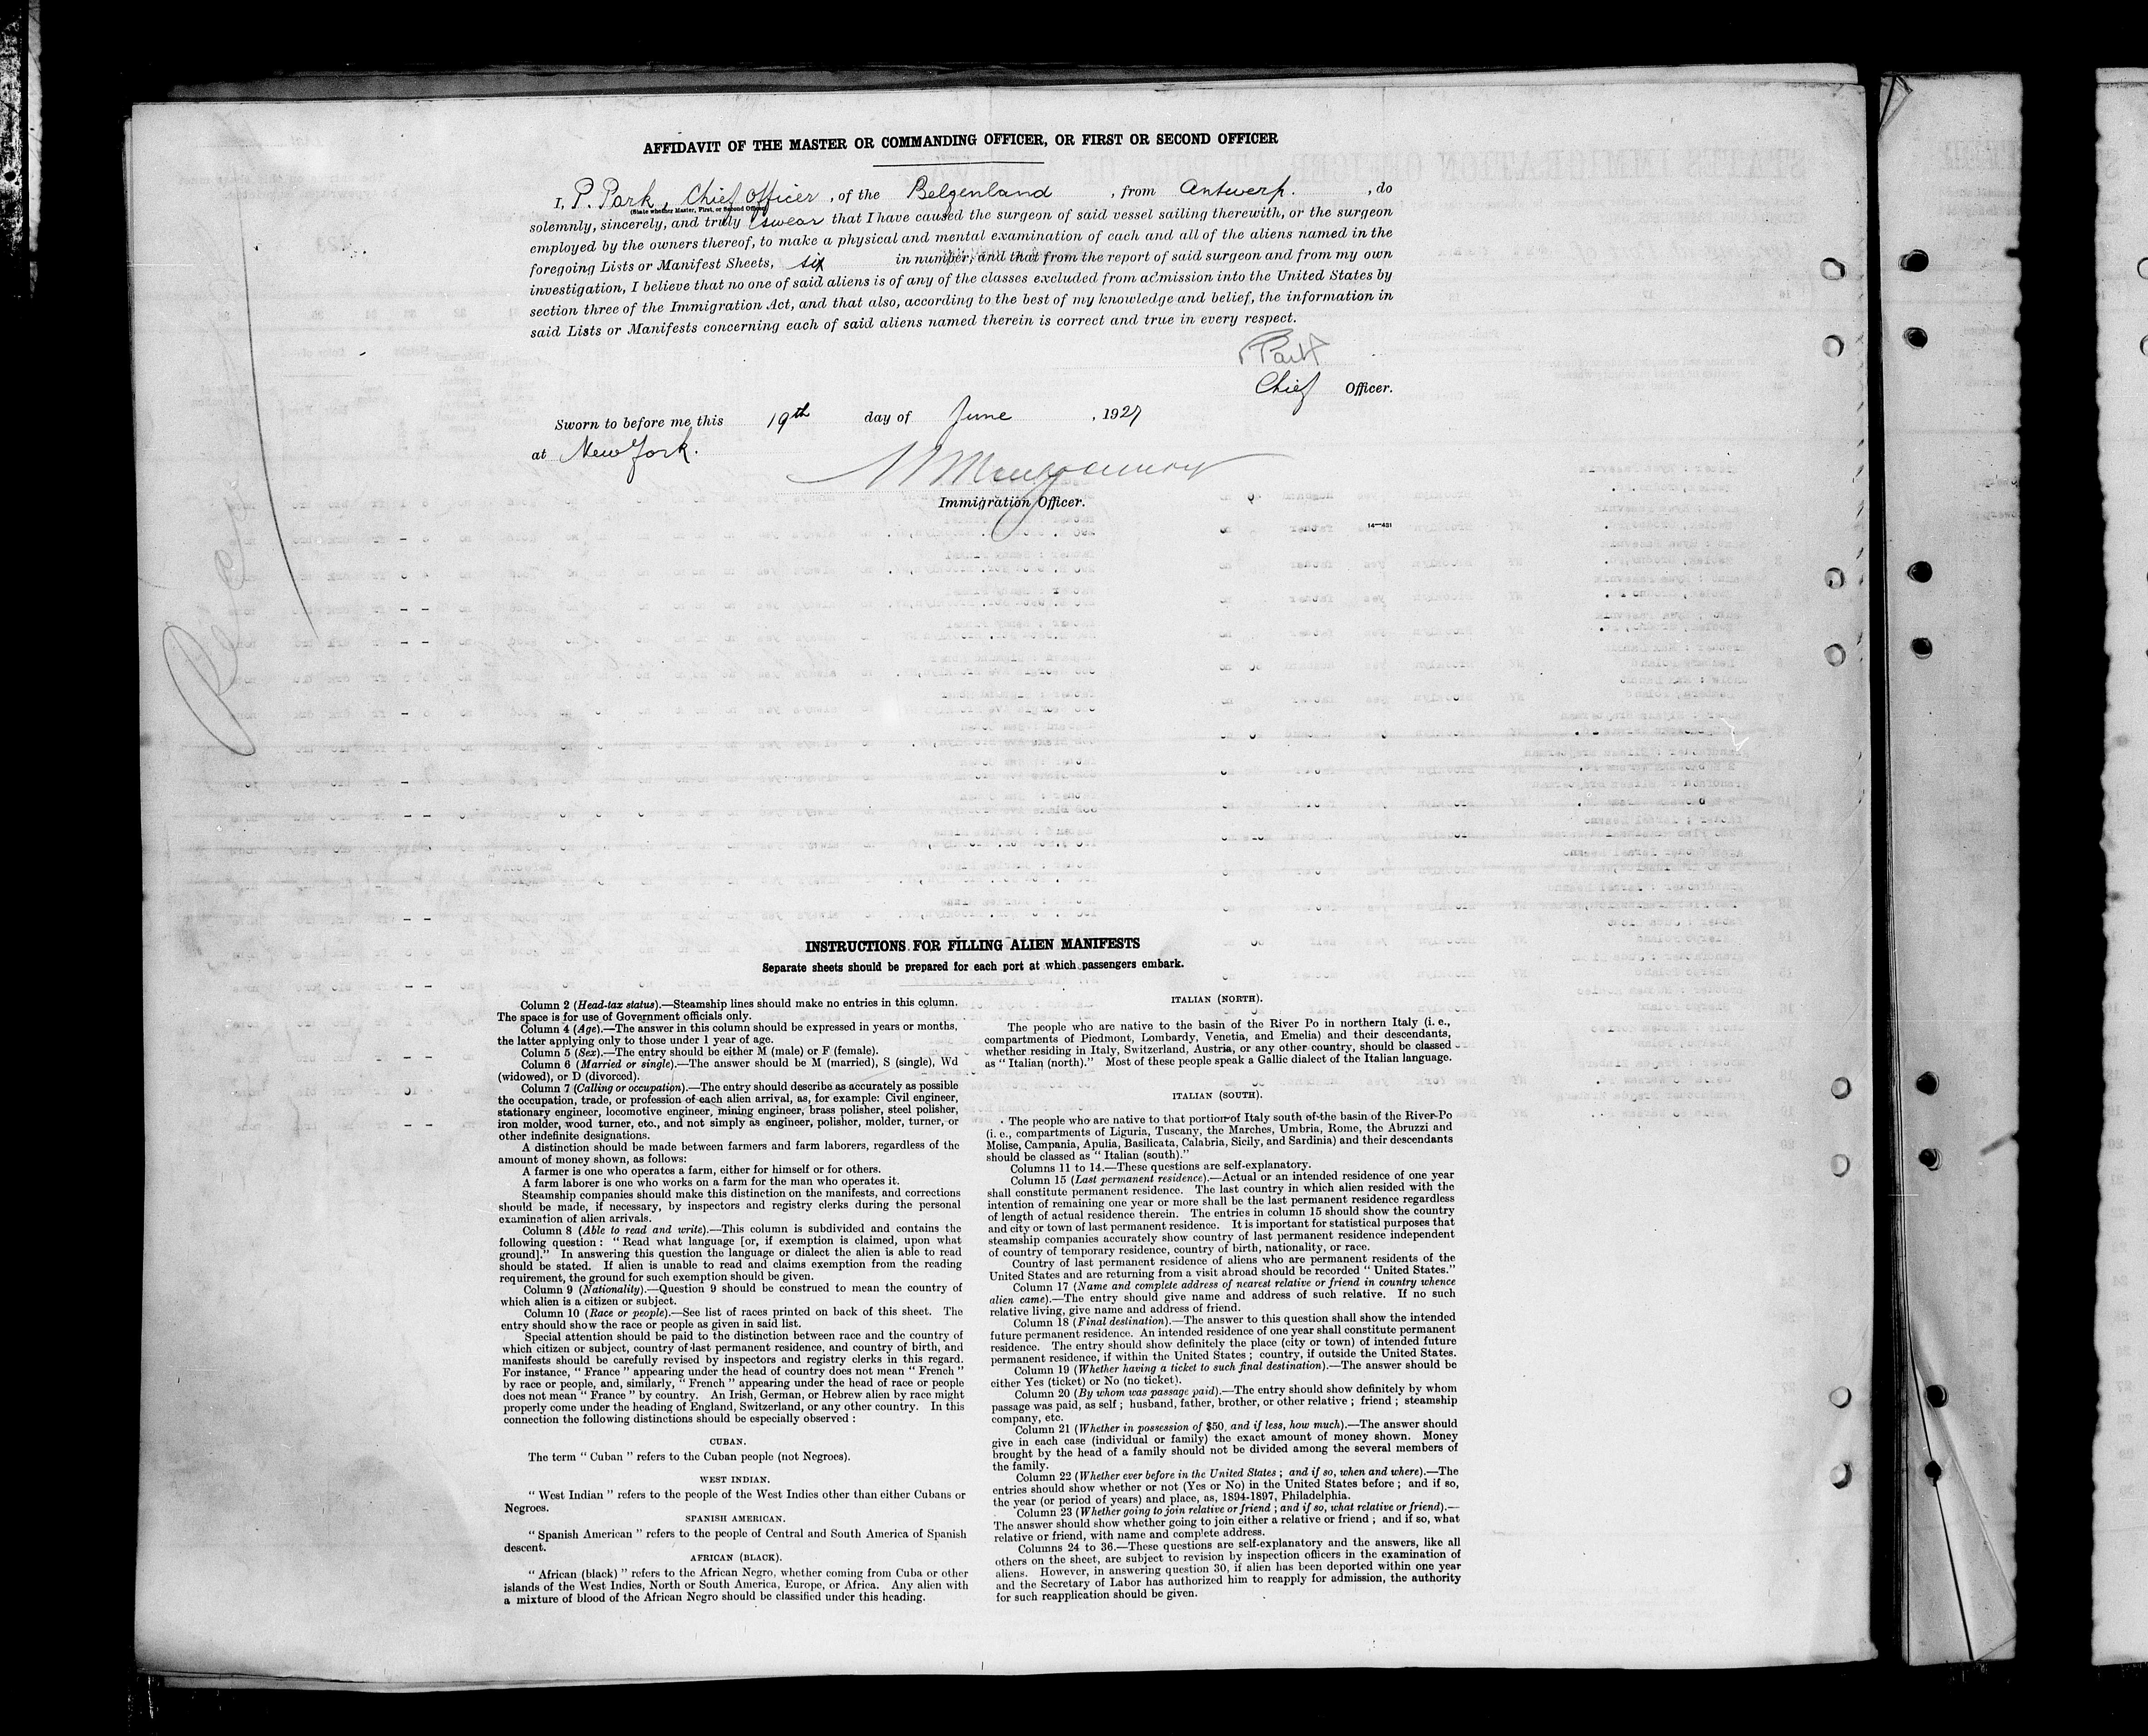 AFFIDAVIT OF THE MASTER OR COMMANDING OFFICER, OR FIRST OR SECOND OFFICER
I, P. Park, Chief Officer, of the Belgenland, from Antwerp., do
(State whether Master, First, or Second Officer)
solemnly, sincerely, and truly swear that I have caused the surgeon of said vessel sailing therewith, or the surgeon
employed by the owners thereof, to make a physical and mental examination of each and all of the aliens named in the
foregoing Lists or Manifest Sheets, six in number, and that from the report of said surgeon and from my own
investigation, I believe that no one of said aliens is of any of the classes excluded from admission into the United States by
section three of the Immigration Act, and that also, according to the best of my knowledge and belief, the information in
said Lists or Manifests concerning each of said aliens named therein is correct and true in every respect.
P Park
Chief Officer.
Sworn to before me this 19th day of June, 1927
at New York.
Montgomery
Immigration Officer.
14—431
INSTRUCTIONS FOR FILLING ALIEN MANIFESTS
Separate sheets should be prepared for each port at which passengers embark.
Column 2 (Head-tax status).—Steamship lines should make no entries in this column.
The space is for use of Government officials only.
Column 4 (Age).—The answer in this column should be expressed in years or months,
the latter applying only to those under 1 year of age.
Column 5 (Sex).—The entry should be either M (male) or F (female).
Column 6 (Married or single).—The answer should be M (married), S (single), Wd
(widowed), or D (divorced).
Column 7 (Calling or occupation).—The entry should describe as accurately as possible
the occupation, trade, or profession of each alien arrival, as, for example: Civil engineer,
stationary engineer, locomotive engineer, mining engineer, brass polisher, steel polisher,
iron molder, wood turner, etc., and not simply as engineer, polisher, molder, turner, or
other indefinite designations.
A distinction should be made between farmers and farm laborers, regardless of the
amount of money shown, as follows:
A farmer is one who operates a farm, either for himself or for others.
A farm laborer is one who works on a farm for the man who operates it.
Steamship companies should make this distinction on the manifests, and corrections
should be made, if necessary, by inspectors and registry clerks during the personal
examination of alien arrivals.
Column 8 (Able to read and write).—This column is subdivided and contains the
following question: "Read what language [or, if exemption is claimed, upon what
ground]." In answering this question the language or dialect the alien is able to read
should be stated. If alien is unable to read and claims exemption from the reading
requirement, the ground for such exemption should be given.
Column 9 (Nationality).—Question 9 should be construed to mean the country of
which alien is a citizen or subject.
Column 10 (Race or people).—See list of races printed on back of this sheet. The
entry should show the race or people as given in said list.
Special attention should be paid to the distinction between race and the country of
which citizen or subject, country of last permanent residence, and country of birth, and
manifests should be carefully revised by inspectors and registry clerks in this regard.
For instance, "France" appearing under the head of country does not mean "French"
by race or people, and, similarly, "French" appearing under the head of race or people
does not mean "France" by country. An Irish, German, or Hebrew alien by race might
properly come under the heading of England, Switzerland, or any other country. In this
connection the following distinctions should be especially observed:
CUBAN.
The term "Cuban" refers to the Cuban people (not Negroes).
WEST INDIAN.
"West Indian" refers to the people of the West Indies other than either Cubans or
Negroes.
SPANISH AMERICAN.
"Spanish American" refers to the people of Central and South America of Spanish
descent.
AFRICAN (BLACK).
"African (black)" refers to the African Negro, whether coming from Cuba or other
islands of the West Indies, North or South America, Europe, or Africa. Any alien with
a mixture of blood of the African Negro should be classified under this heading.
ITALIAN (NORTH).
The people who are native to the basin of the River Po in northern Italy (i. e.,
compartments of Piedmont, Lombardy, Venetia, and Emelia) and their descendants,
whether residing in Italy, Switzerland, Austria, or any other country, should be classed
as "Italian (north)." Most of these people speak a Gallic dialect of the Italian language.
ITALIAN (SOUTH).
The people who are native to that portion of Italy south of the basin of the River Po
(i. e., compartments of Liguria, Tuscany, the Marches, Umbria, Rome, the Abruzzi and
Molise, Campania, Apulia, Basilicata, Calabria, Sicily, and Sardinia) and their descendants
should be classed as "Italian (south)."
Columns 11 to 14.—These questions are self-explanatory.
Column 15 (Last permanent residence).—Actual or an intended residence of one year
shall constitute permanent residence. The last country in which alien resided with the
intention of remaining one year or more shall be the last permanent residence regardless
of length of actual residence therein. The entries in column 15 should show the country
and city or town of last permanent residence. It is important for statistical purposes that
steamship companies accurately show country of last permanent residence independent
of country of temporary residence, country of birth, nationality, or race.
Country of last permanent residence of aliens who are permanent residents of the
United States and are returning from a visit abroad should be recorded "United States."
Column 17 (Name and complete address of nearest relative or friend in country whence
alien came).—The entry should give name and address of such relative. If no such
relative living, give name and address of friend.
Column 18 (Final destination).—The answer to this question shall show the intended
future permanent residence. An intended residence of one year shall constitute permanent
residence. The entry should show definitely the place (city or town) of intended future
permanent residence, if within the United States; country, if outside the United States.
Column 19 (Whether having a ticket to such final destination).—The answer should be
either Yes (ticket) or No (no ticket).
Column 20 (By whom was passage paid).—The entry should show definitely by whom
passage was paid, as self; husband, father, brother, or other relative; friend; steamship
company, etc.
Column 21 (Whether in possession of $50, and if less, how much).—The answer should
give in each case (individual or family) the exact amount of money shown. Money
brought by the head of a family should not be divided among the several members of
the family.
Column 22 (Whether ever before in the United States; and if so, when and where).—The
entries should show whether or not (Yes or No) in the United States before; and if so,
the year (or period of years) and place, as, 1894-1897, Philadelphia.
Column 23 (Whether going to join relative or friend; and if so, what relative or friend).—
The answer should show whether going to join either a relative or friend; and if so, what
relative or friend, with name and complete address.
Columns 24 to 36.—These questions are self-explanatory and the answers, like all
others on the sheet, are subject to revision by inspection officers in the examination of
aliens. However, in answering question 30, if alien has been deported within one year
and the Secretary of Labor has authorized him to reapply for admission, the authority
for such reapplication should be given.